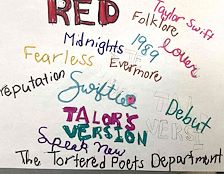 RED
Taylor Swift
Folklore
Midnights
1989
Lover
Fearless
Evermore
reputation
Swiftie
Debut
TALOR'S
VERSION
Speak New
The Tortered Poets Department